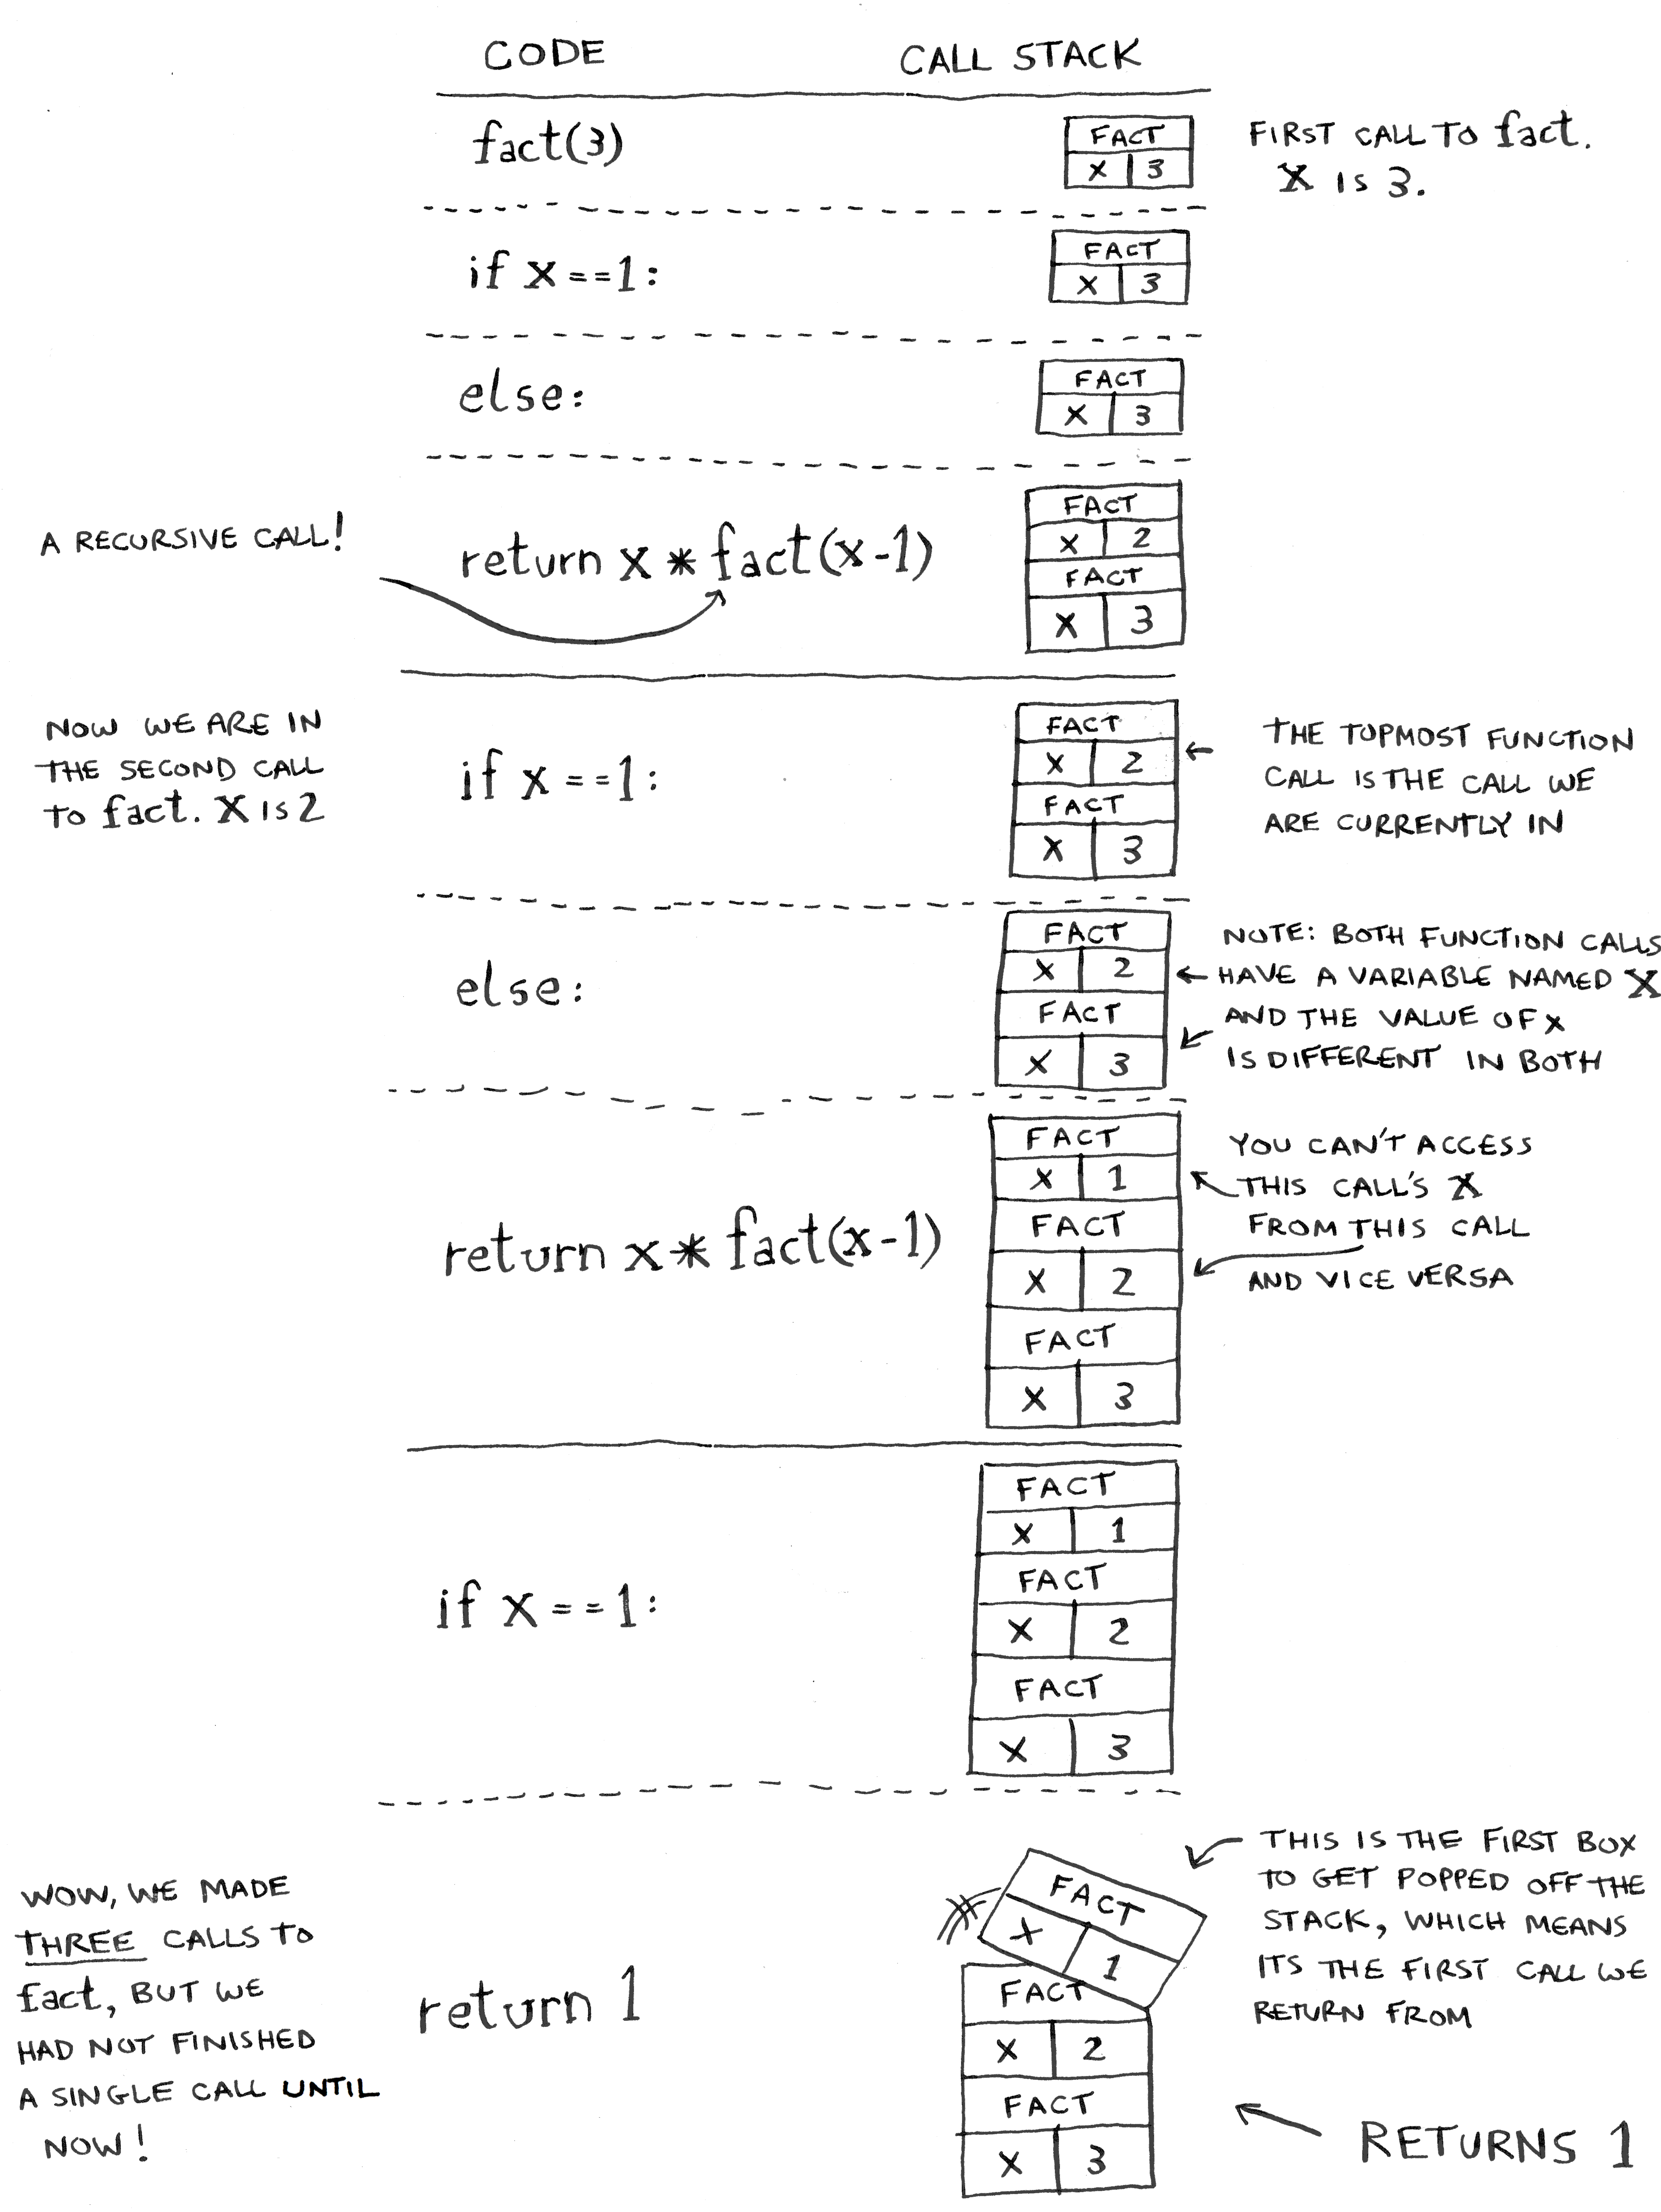 CODE
CALL STACK
fact(3)
FACT
X 3
FIRST CALL TO fact.
X IS 3.
if x==1:
FACT
X 3
else:
FACT
X 3
A RECURSIVE CALL!
return x * fact(x-1)
FACT
X 2
FACT
X 3
NOW WE ARE IN
THE SECOND CALL
TO fact. X IS 2
if x==1:
FACT
X 2
FACT
X 3
THE TOPMOST FUNCTION
CALL IS THE CALL WE
ARE CURRENTLY IN
else:
FACT
X 2
FACT
X 3
NOTE: BOTH FUNCTION CALLS
HAVE A VARIABLE NAMED X
AND THE VALUE OF X
IS DIFFERENT IN BOTH
return x * fact(x-1)
FACT
X 1
FACT
X 2
FACT
X 3
YOU CAN'T ACCESS
THIS CALL'S X
FROM THIS CALL
AND VICE VERSA
if x==1:
FACT
X 1
FACT
X 2
FACT
X 3
WOW, WE MADE
THREE CALLS TO
fact, BUT WE
HAD NOT FINISHED
A SINGLE CALL UNTIL
NOW!
return 1
FACT
X 1
FACT
X 2
FACT
X 3
THIS IS THE FIRST BOX
TO GET POPPED OFF THE
STACK, WHICH MEANS
ITS THE FIRST CALL WE
RETURN FROM
RETURNS 1